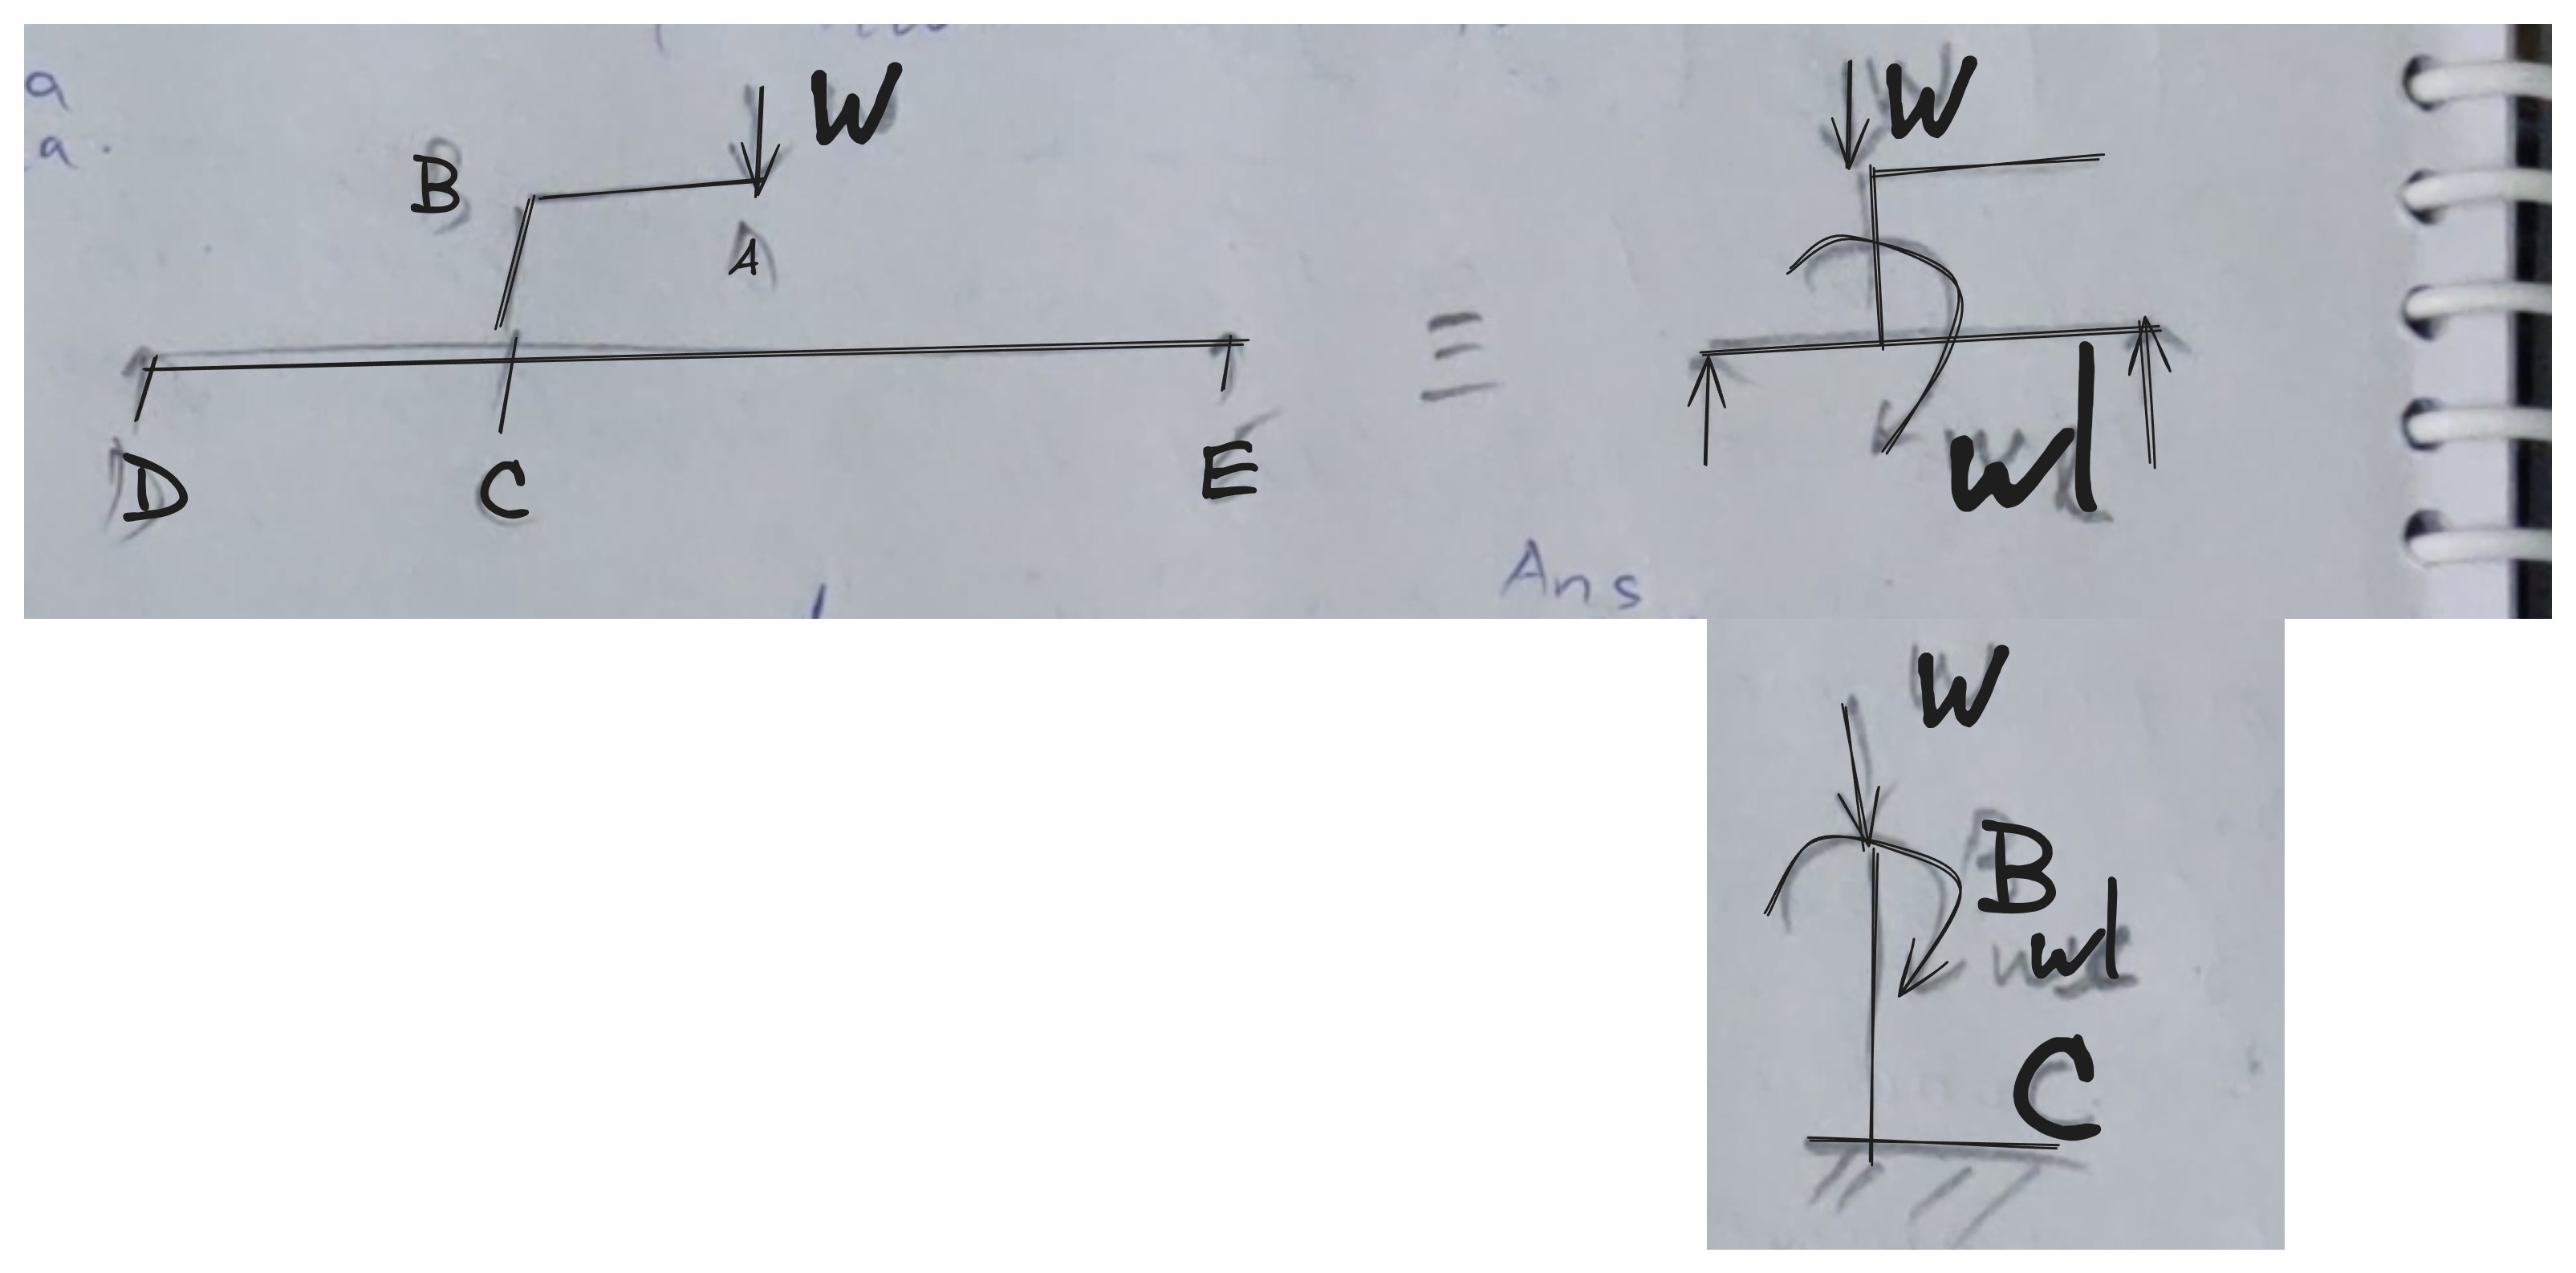 a
a.
W
B
A
D
C
E
≡
W
Wl
Ans
W
B
wl
C